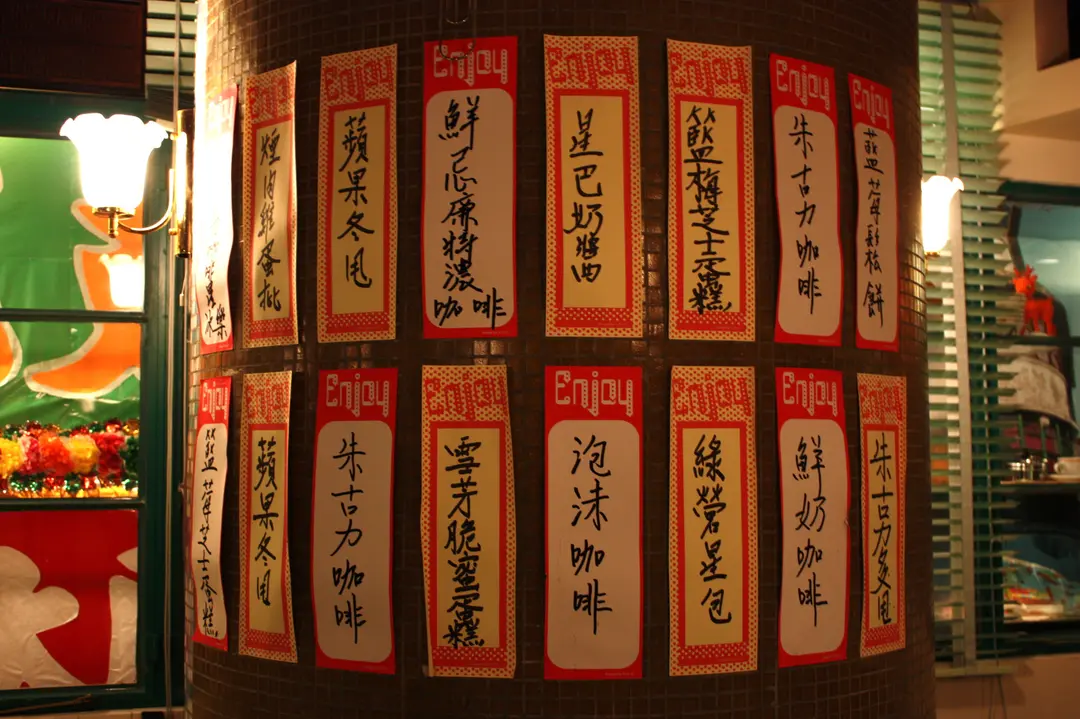 冰樂
Enjoy
煙肉雞蛋批
Enjoy
蘋果冬甩
Enjoy
鮮忌廉特濃
咖啡
Enjoy
星巴奶
Enjoy
籃梅芝士蛋糕
Enjoy
朱古力咖啡
Enjoy
藍莓鬆餅
Enjoy
籃莓芝士蛋糕
Enjoy
蘋果冬甩
Enjoy
朱古力咖啡
Enjoy
雪芳脆蜜蛋糕
Enjoy
泡沫咖啡
Enjoy
綠營星包
Enjoy
鮮奶咖啡
Enjoy
朱古力多甩